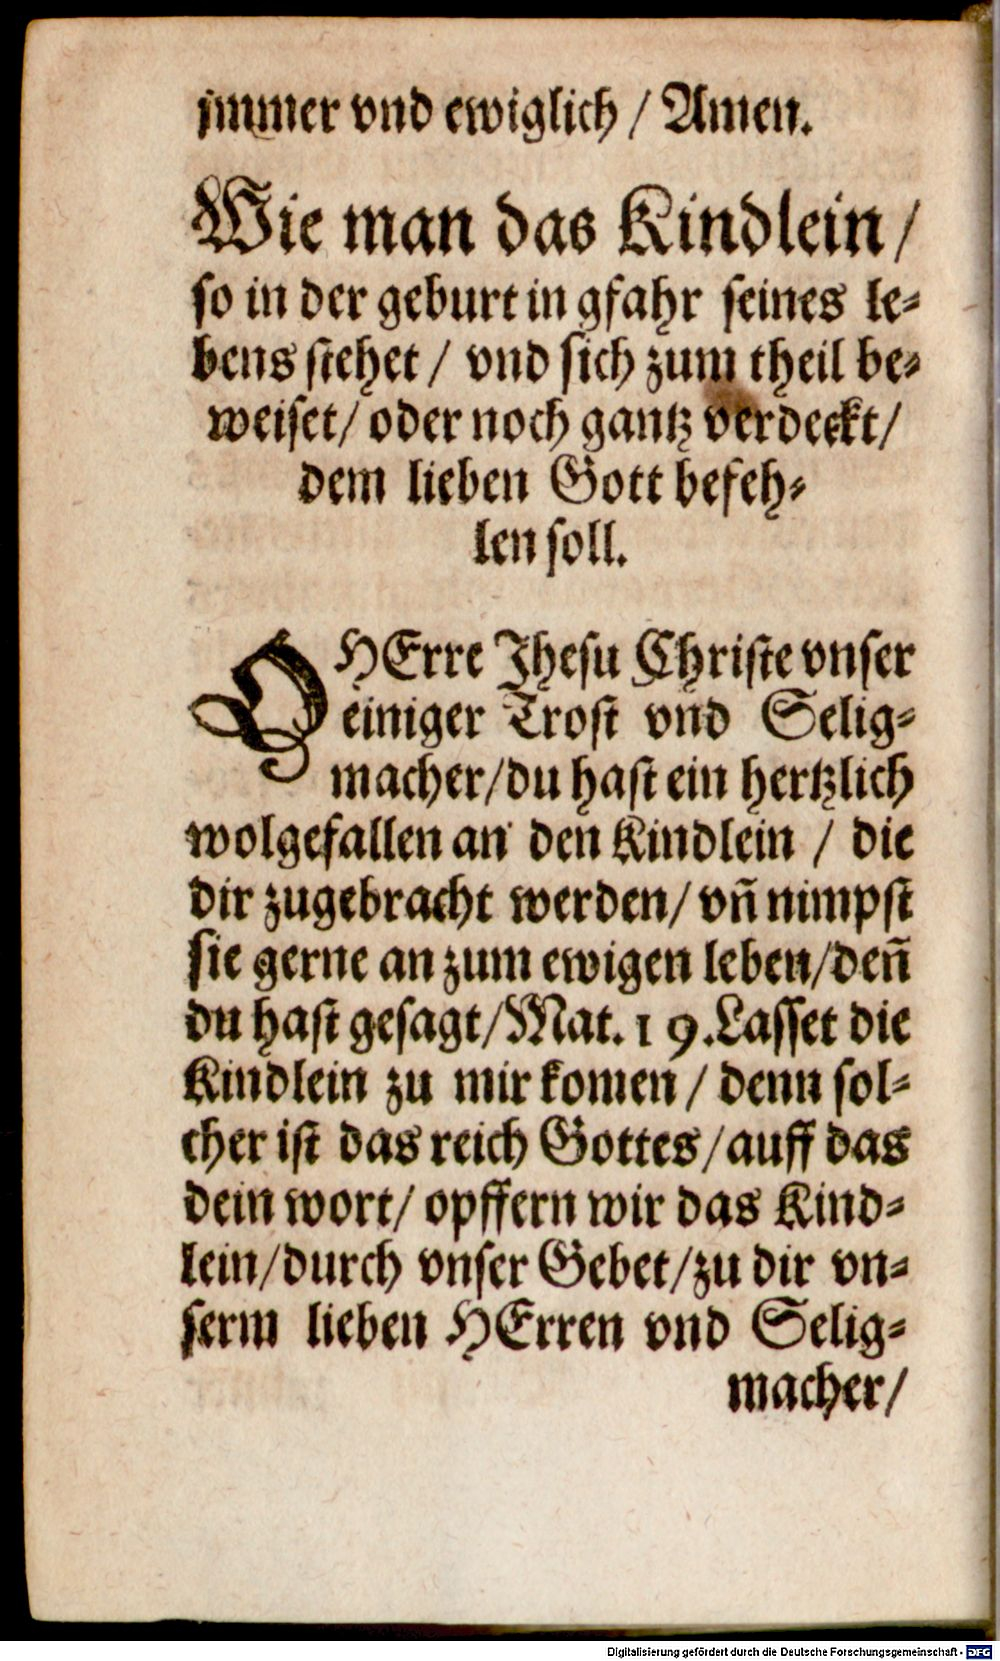 jmmer vnd ewiglich / Amen.
Wie man das Kindlein /
so in der geburt in gfahr seines le⸗
bens stehet / vnd sich zum theil be⸗
weiset/ oder noch gantz verdeckt/
dem lieben Gott befeh⸗
len soll.
O HErre Jhesu Christe vnser
einiger Trost vnd Selig⸗
macher/du hast ein hertzlich
wolgefallen an den Kindlein / die
dir zugebracht werden/ vn̄ nimpst
sie gerne an zum ewigen leben/den̄
du hast gesagt/Mat. 19.Lasset die
Kindlein zu mir komen / denn sol⸗
cher ist das reich Gottes/auff das
dein wort/ opffern wir das Kind⸗
lein/durch vnser Gebet/zu dir vn⸗
serm lieben HErren vnd Selig⸗
macher/
Digitalisierung gefördert durch die Deutsche Forschungsgemeinschaft - DFG